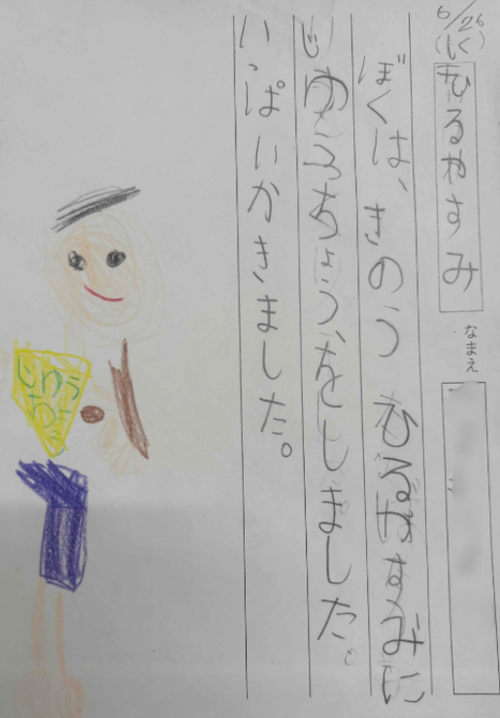 6/26
(もく)
ひるやすみ
なまえ
ぼくは、きのう ひるやすみに
じゆうちょう、をしました。
いっぱいかきました。
じゆう
ちょう